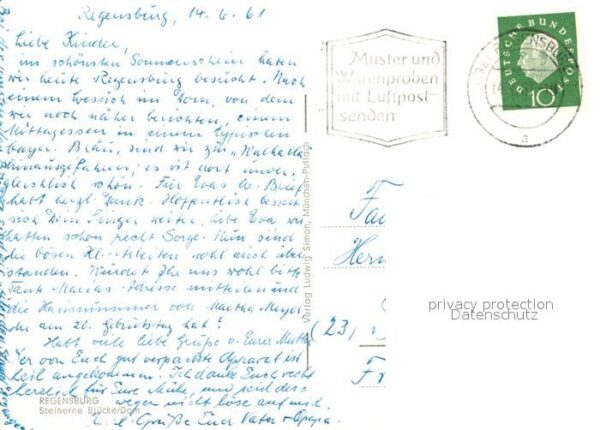 Regensburg, 14.6.61
Liebe Kinder,
im schönsten Sonnenschein haben
wir heute Regensburg besucht. Nach
einem Besuch im Dom, von dem
wir noch näher berichten, einem
Mittagessen in einem typischen
bayer. Bräu, sind wir zur "Walhalla"
hinausgefahren; es ist dort unver-
gleichlich schön. Für Evas lb. Brief
habt herzl. Dank. Hoffentlich bessert
sich Dein Finger weiter, liebe Eva wir
hatten schon recht Sorge. Nun sind
die bösen Kl.-Arbeiten wohl auch über
standen. Würdet Ihr uns wohl bitte
Tante Marias Adresse mitteilen und
die Hausnummer von Martha Meyer
die am 20. Geburtstag hat?
Habt viele liebe Grüße v. Eurer Mutter
Der von Euch gut verpackte Apparat ist
heil angekommen. Ich danke Euch recht
herzlich für Eure Mühe, und seid des-
wegen nicht böse auf mich.
Herzl. Grüße Euer Vater + Opapa
REGENSBURG
Steinerne Brücke/Dom
Verlag Ludwig Simon, München-Pullach
Muster und
Warenproben
mit Luftpost-
senden
REGENSBURG
a
DEUTSCHE BUNDESPOST
10
Fa
Her
(23)
F
privacy protection
Datenschutz